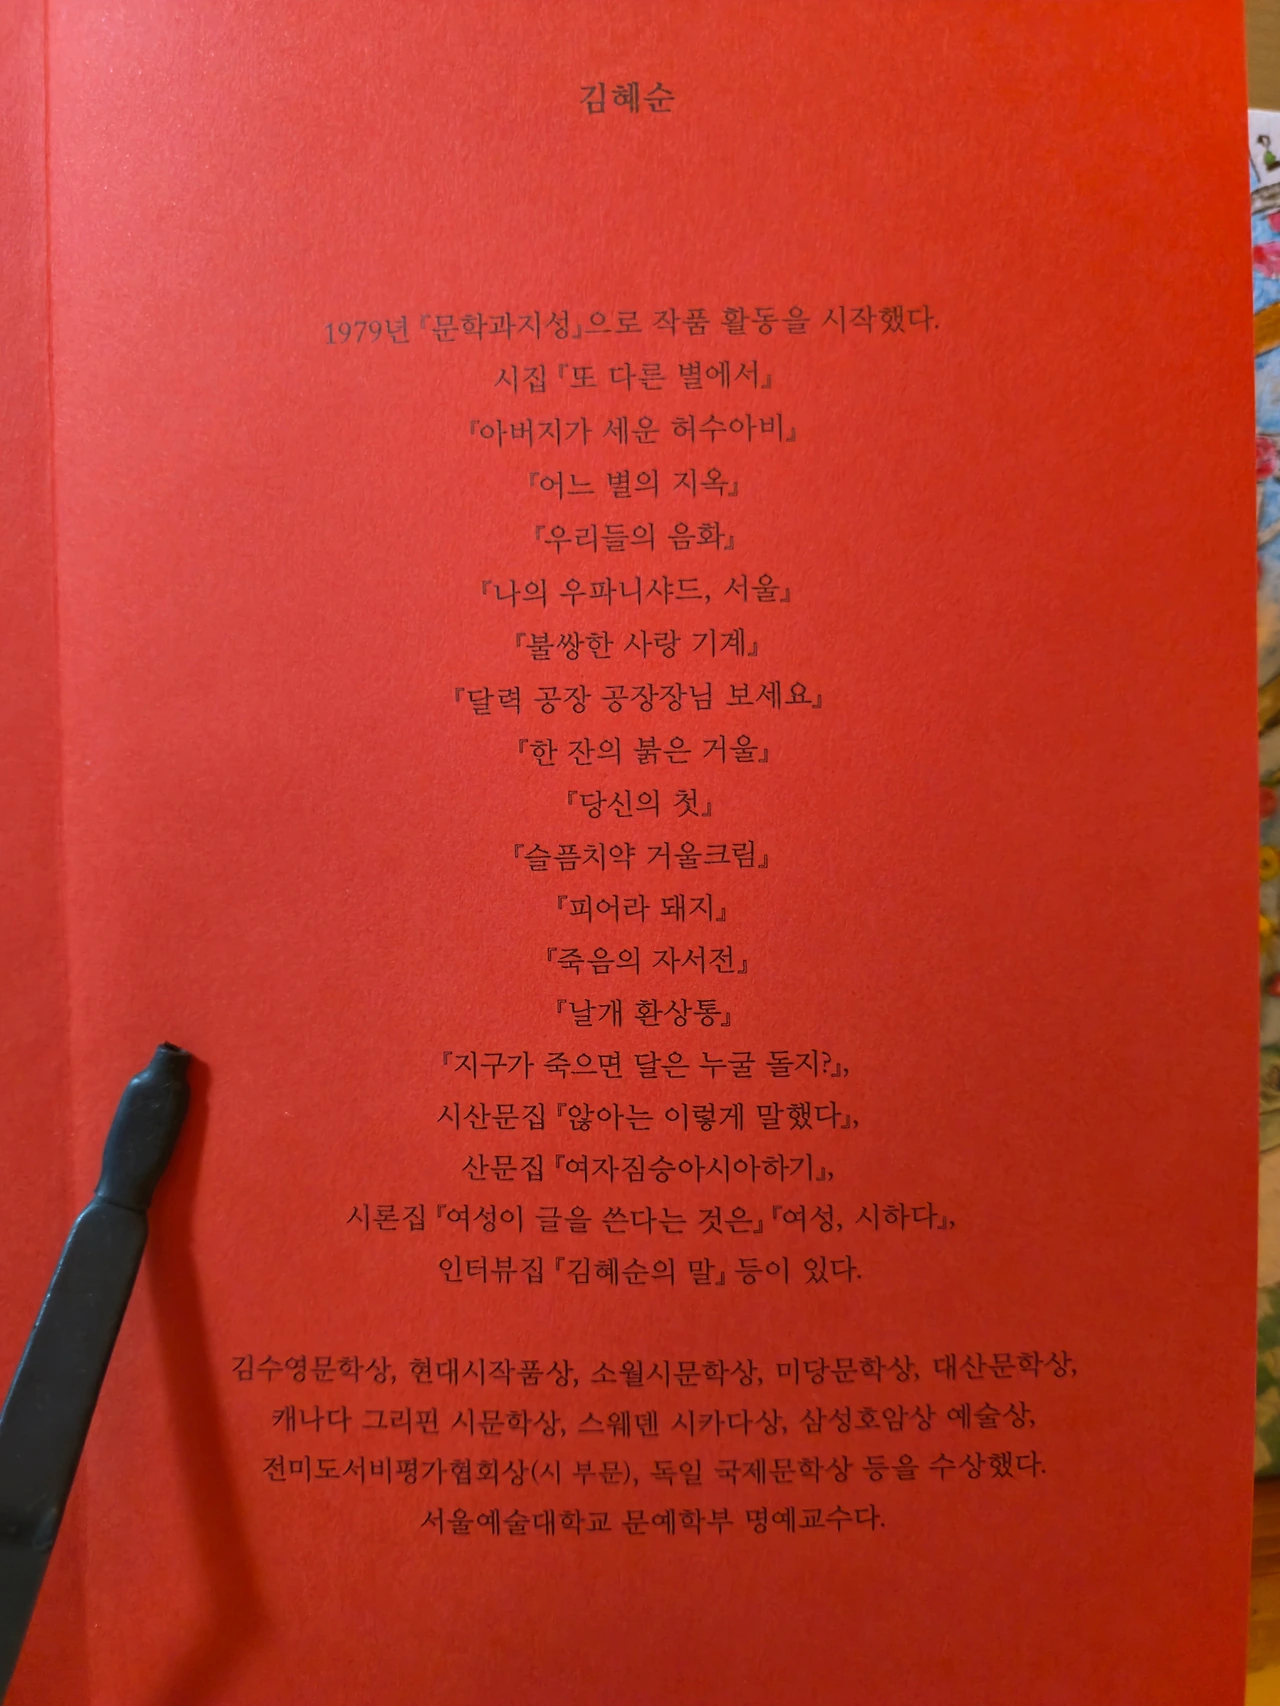 김혜순
1979년 『문학과지성』으로 작품 활동을 시작했다.
시집 『또 다른 별에서』
『아버지가 세운 허수아비』
『어느 별의 지옥』
『우리들의 음화』
『나의 우파니샤드, 서울』
『불쌍한 사랑 기계』
『달력 공장 공장장님 보세요』
『한 잔의 붉은 거울』
『당신의 첫』
『슬픔치약 거울크림』
『피어라 돼지』
『죽음의 자서전』
『날개 환상통』
『지구가 죽으면 달은 누굴 돌지?』,
시산문집 『않아는 이렇게 말했다』,
산문집 『여자짐승아시아하기』,
시론집 『여성이 글을 쓴다는 것은』 『여성, 시하다』,
인터뷰집 『김혜순의 말』 등이 있다.
김수영문학상, 현대시작품상, 소월시문학상, 미당문학상, 대산문학상,
캐나다 그리핀 시문학상, 스웨덴 시카다상, 삼성호암상 예술상,
전미도서비평가협회상(시 부문), 독일 국제문학상 등을 수상했다.
서울예술대학교 문예학부 명예교수다.